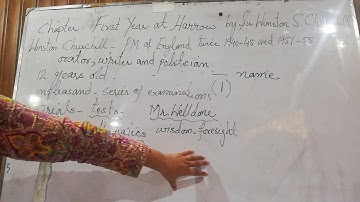 Chapter: First Year at Harrow by Sir Winston S. Churchill
Winston Churchill - PM of England twice 1940-45 and 1951-55
orator, writer and politician
12 years old. - name
unpleasant - series of examinations (1)
trials - tests. Mr. Welldone
wisdom - foresight